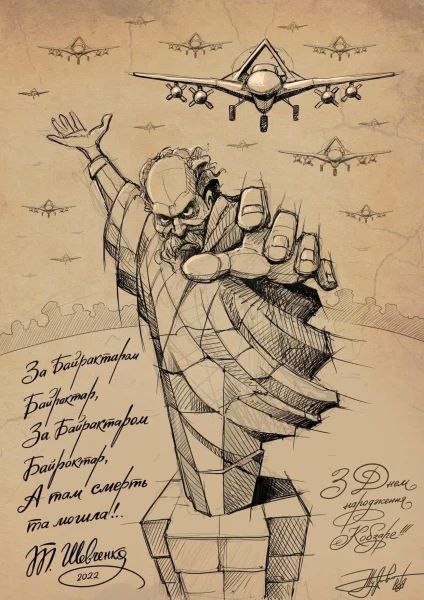 За Байрактаром
Байрактар,
За Байрактаром
Байрактар,
А там смерть
та могила!..
Т. Шевченко
2022
З Днем
народження
Кобзаре!!!